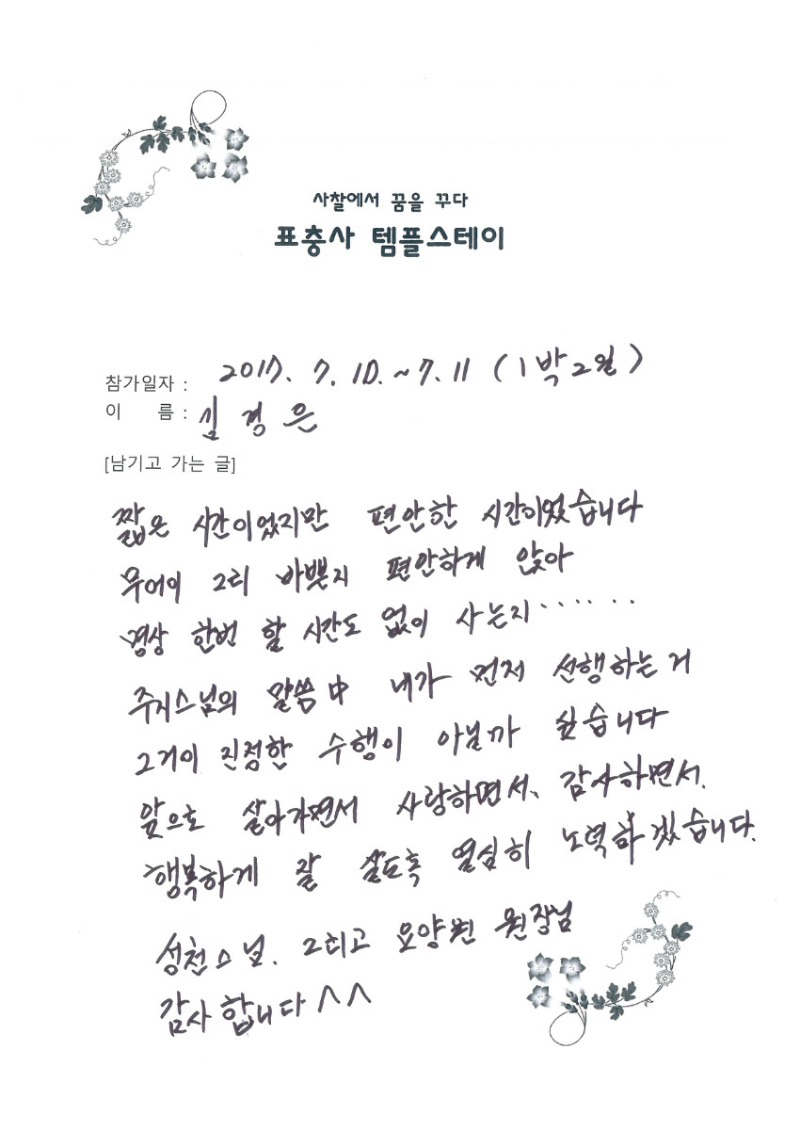 사찰에서 꿈을 꾸다
표충사 템플스테이
참가일자 : 2017. 7. 10. ~ 7. 11 (1박2일)
이 름 : 김경은
[남기고 가는 글]
짧은 시간이었지만 편안한 시간이었습니다
무어이 그리 바쁜지 편안하게 앉아
명상 한번 할 시간도 없이 사는지……
주지스님의 말씀中 내가 먼저 선행하는거
그거이 진정한 수행이 아닐까 싶습니다
앞으로 살아가면서 사랑하면서, 감사하면서.
행복하게 잘 살도록 열심히 노력하겠습니다.
성천스님. 그리고 요양원 원장님
감사합니다 ^^